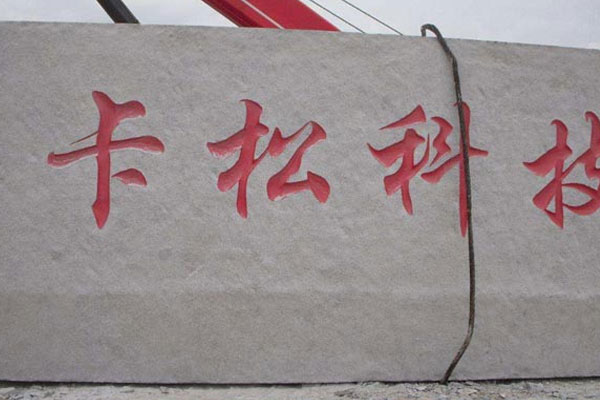 卡松科技